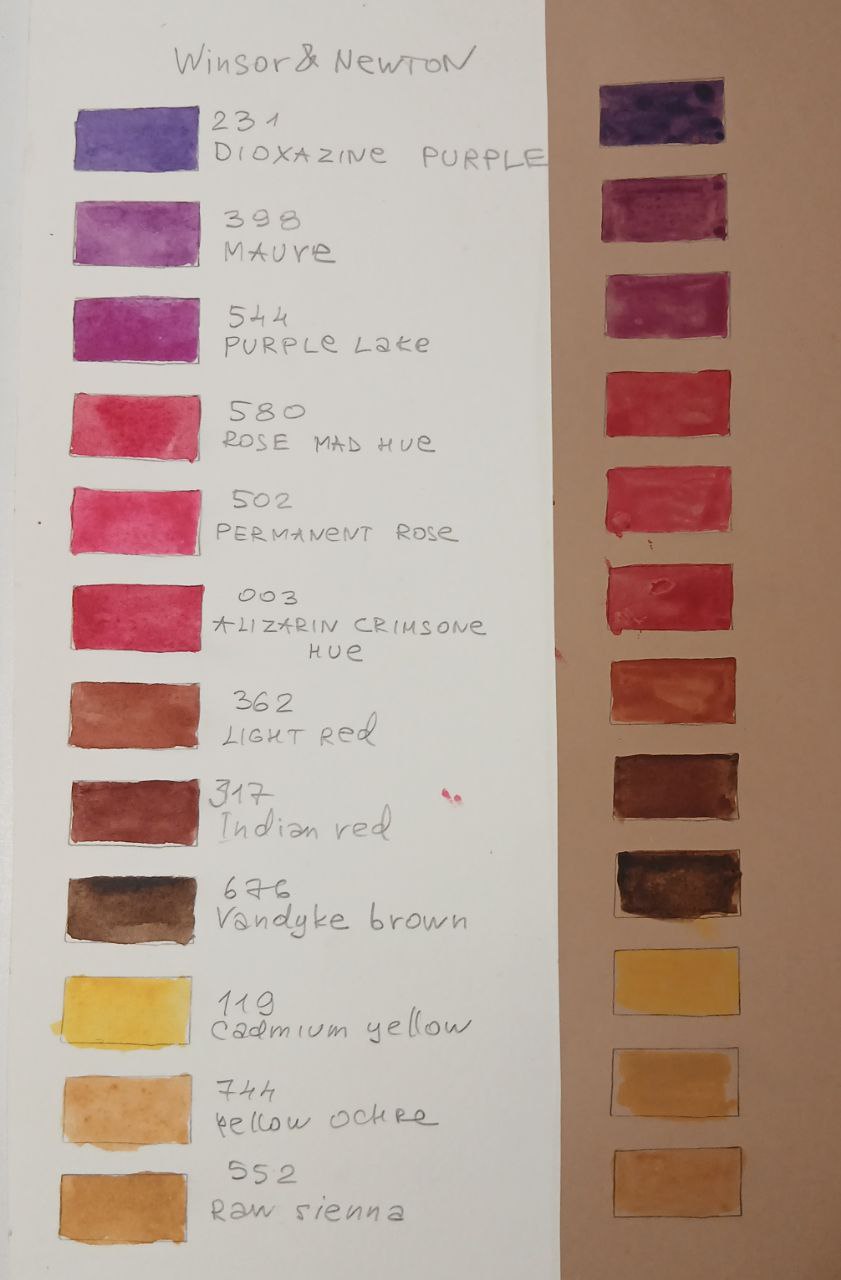 Winsor & Newton
231
DIOXAZINE PURPLE
398
MAUVE
544
PURPLE LAKE
580
ROSE MAD HUE
502
PERMANENT ROSE
003
ALIZARIN CRIMSONE
HUE
362
LIGHT Red
317
Indian red
676
Vandyke brown
119
Cadmium yellow
744
yellow OCHRE
552
RAW sienna